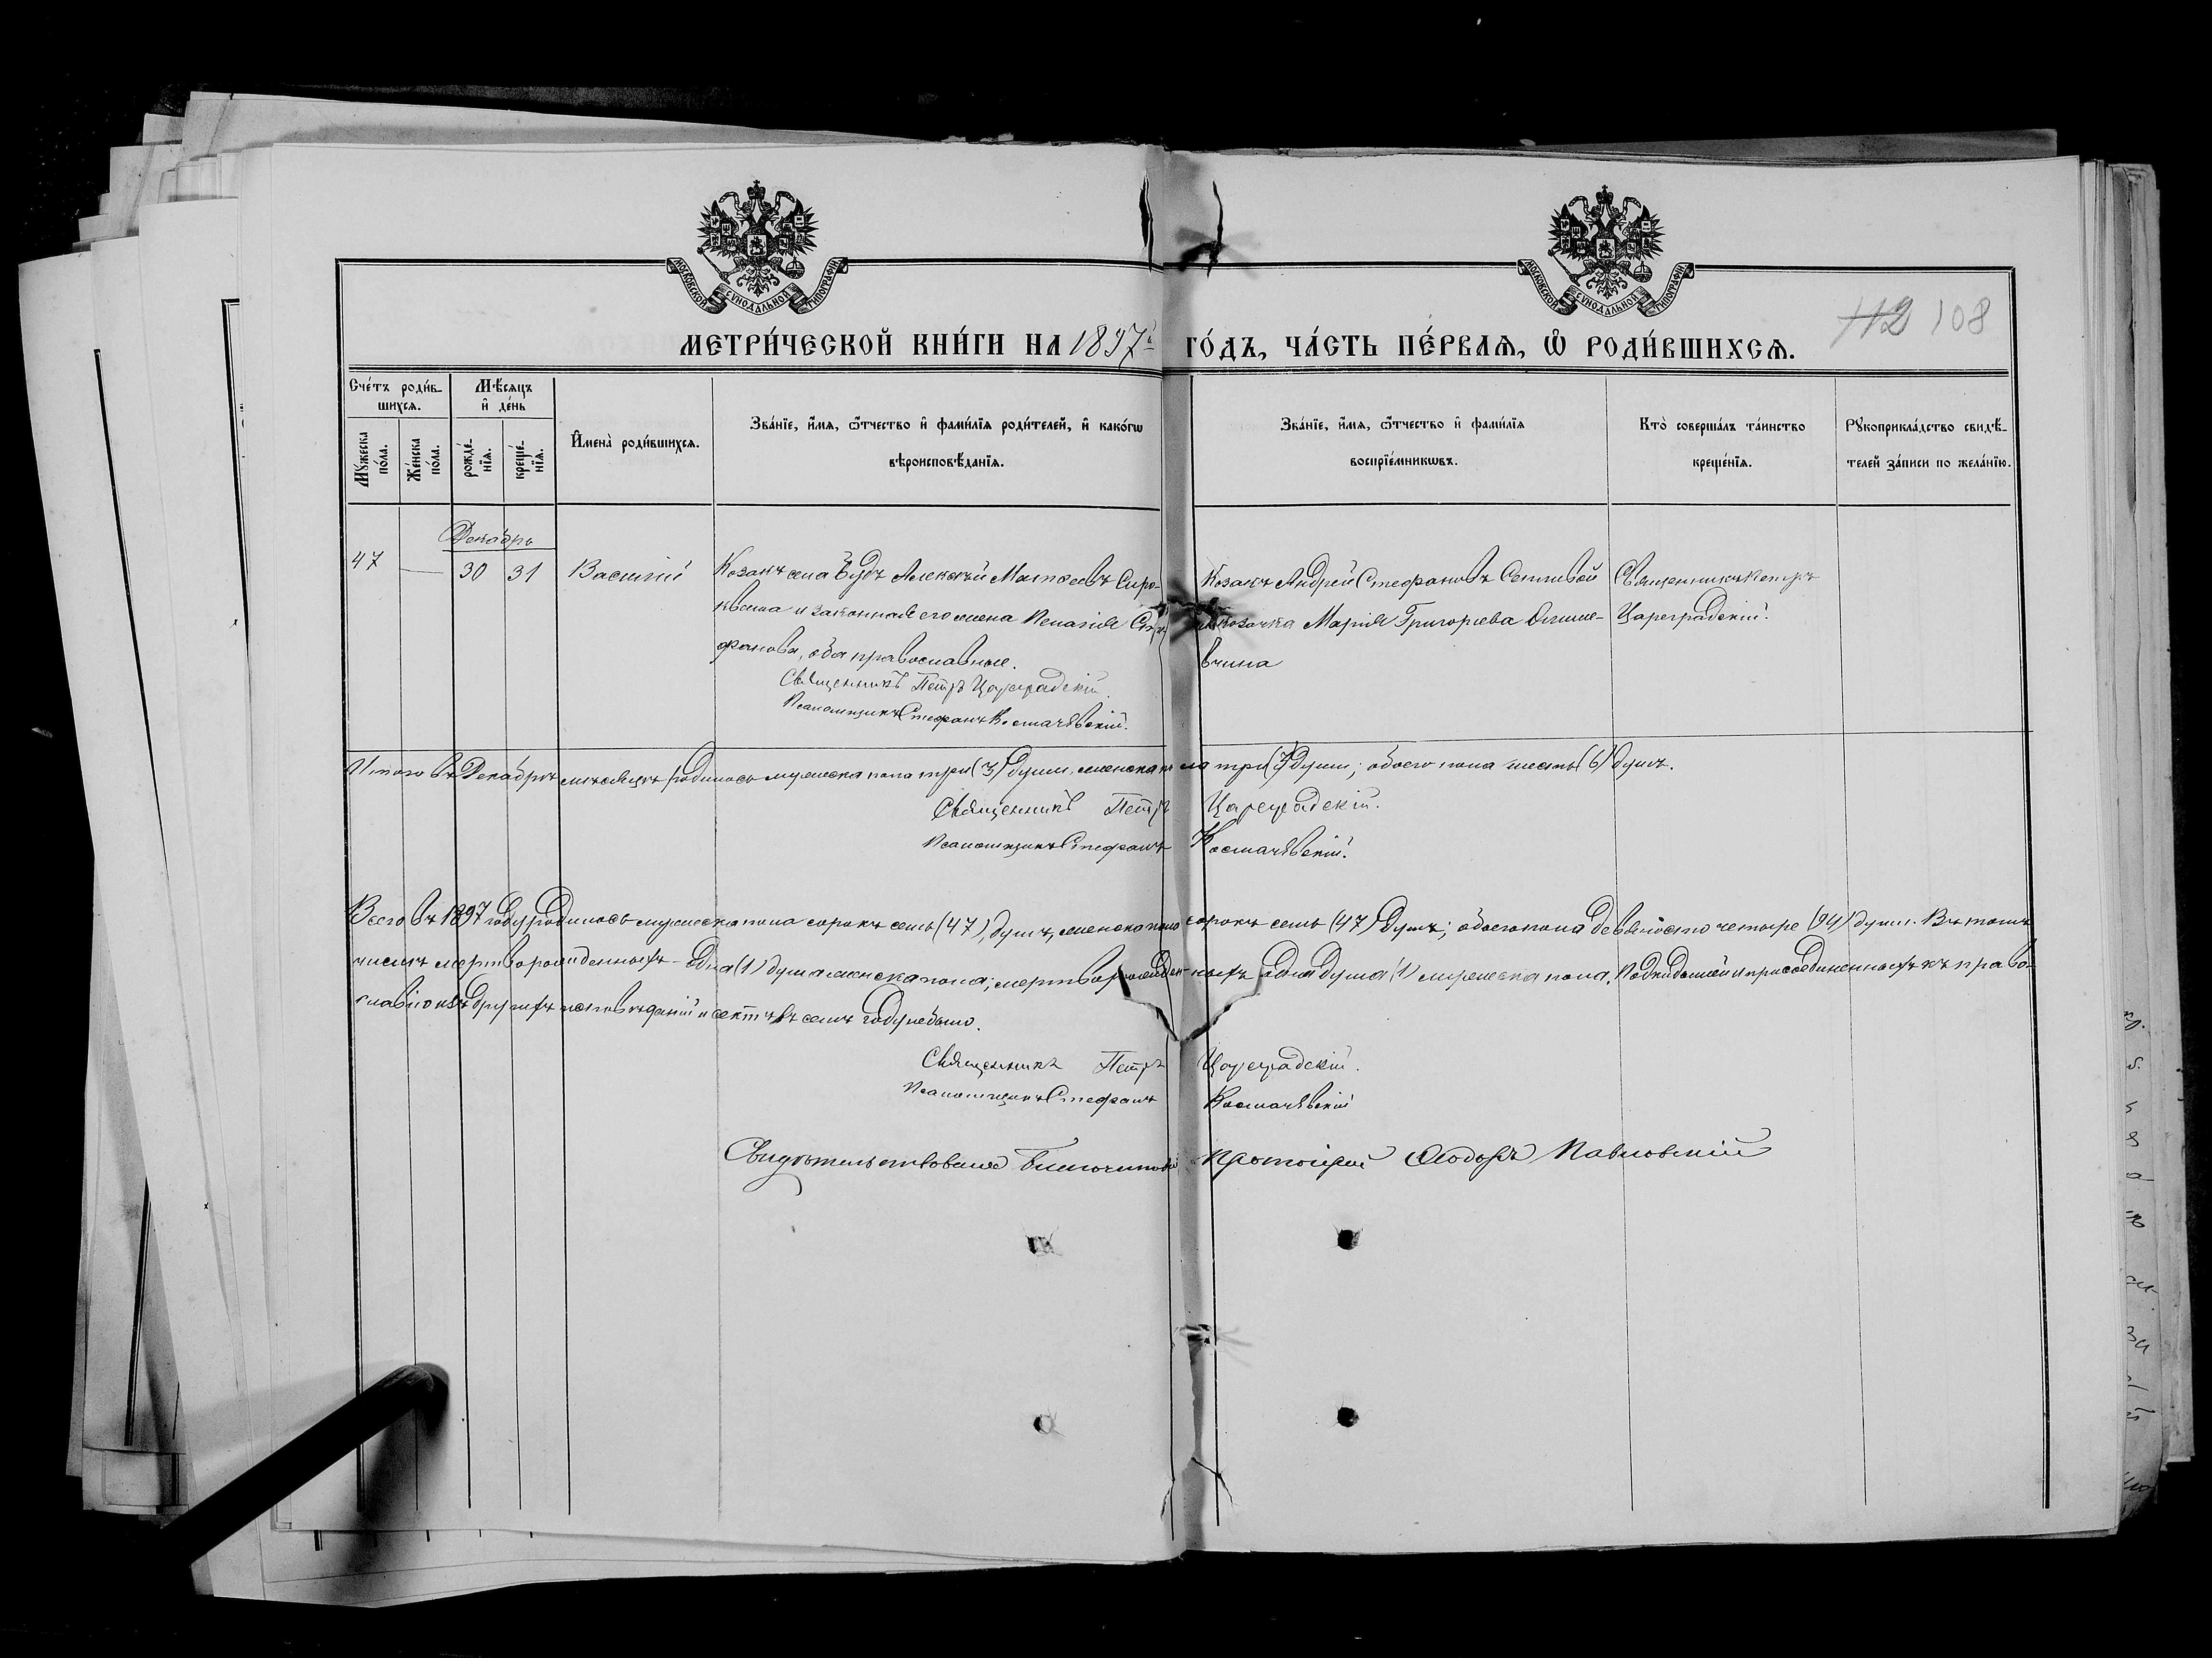 МОСКОВСКОЙ СѴНОДАЛЬНОЙ ТИПОГРАФІИ.
МОСКОВСКОЙ СѴНОДАЛЬНОЙ ТИПОГРАФІИ.
112 108
МЕТРИ́ЧЕСКОЙ КНИ́ГИ НА 1897й ГО́ДЪ, ЧА́СТЬ ПЕ́РВАѦ, Ѿ РОДИ́ВШИХСѦ.
Сче́тъ роди́в-
шихсѧ.
Мѣ́сѧцъ
и҆ де́нь
Мꙋ́жеска
по́ла.
Же́нска
по́ла.
рожде́-
нїѧ.
креще́-
нїѧ.
И҆мена̀ роди́вшихсѧ.
Зва́нїе, и҆́мѧ, ѻ҆́тчество и҆ фами́лїѧ роди́телей, и҆ како́гѡ
вѣроисповѣ́данїѧ.
Зва́нїе, и҆́мѧ, ѻ҆́тчество и҆ фами́лїѧ
воспрїе́мникѡвъ.
Кто̀ соверша́лъ та́инство
креще́нїѧ.
Рꙋкоприкла́дство свидѣ́-
телей за́писи по жела́нїю.
Декабрь
47 — 30 31 Василій
Козакъ села Будъ Алексѣй Матѳеевъ Сиро-
квашa и законная его жена Пелагія Сте-
фанова, оба православные.
Священникъ Петръ Цареградскій.
Псаломщикъ Стефанъ Космачевскій.
Козакъ Андрей Стефановъ
и козачка Марія Григорьева
Священникъ Петръ
Цареградскій.
Итого въ Декабрѣ мѣсяцѣ родилось мужеска пола три (3) души, женска пола три (3) души; обоего пола шесть (6) душъ.
Священникъ Петръ Цареградскій.
Псаломщикъ Стефанъ Космачевскій.
Всего въ 1897 году родилось мужеска пола сорокъ семь (47) душъ, женска пола сорокъ семь (47) душъ; обоего пола девяносто четыре (94) души. Въ томъ
числѣ мертворожденныхъ - одна (1) душа женска пола; мертворожденныхъ одна душа (1) мужеска пола. Подкидышей и присоединенныхъ къ право-
славію изъ другихъ исповѣданій и сектъ въ семъ году не было.
Священникъ Петръ Цареградскій.
Псаломщикъ Стефанъ Космачевскій
Свидѣтельствовалъ Благочинный Протоіерей Ѳеодоръ Павловскій